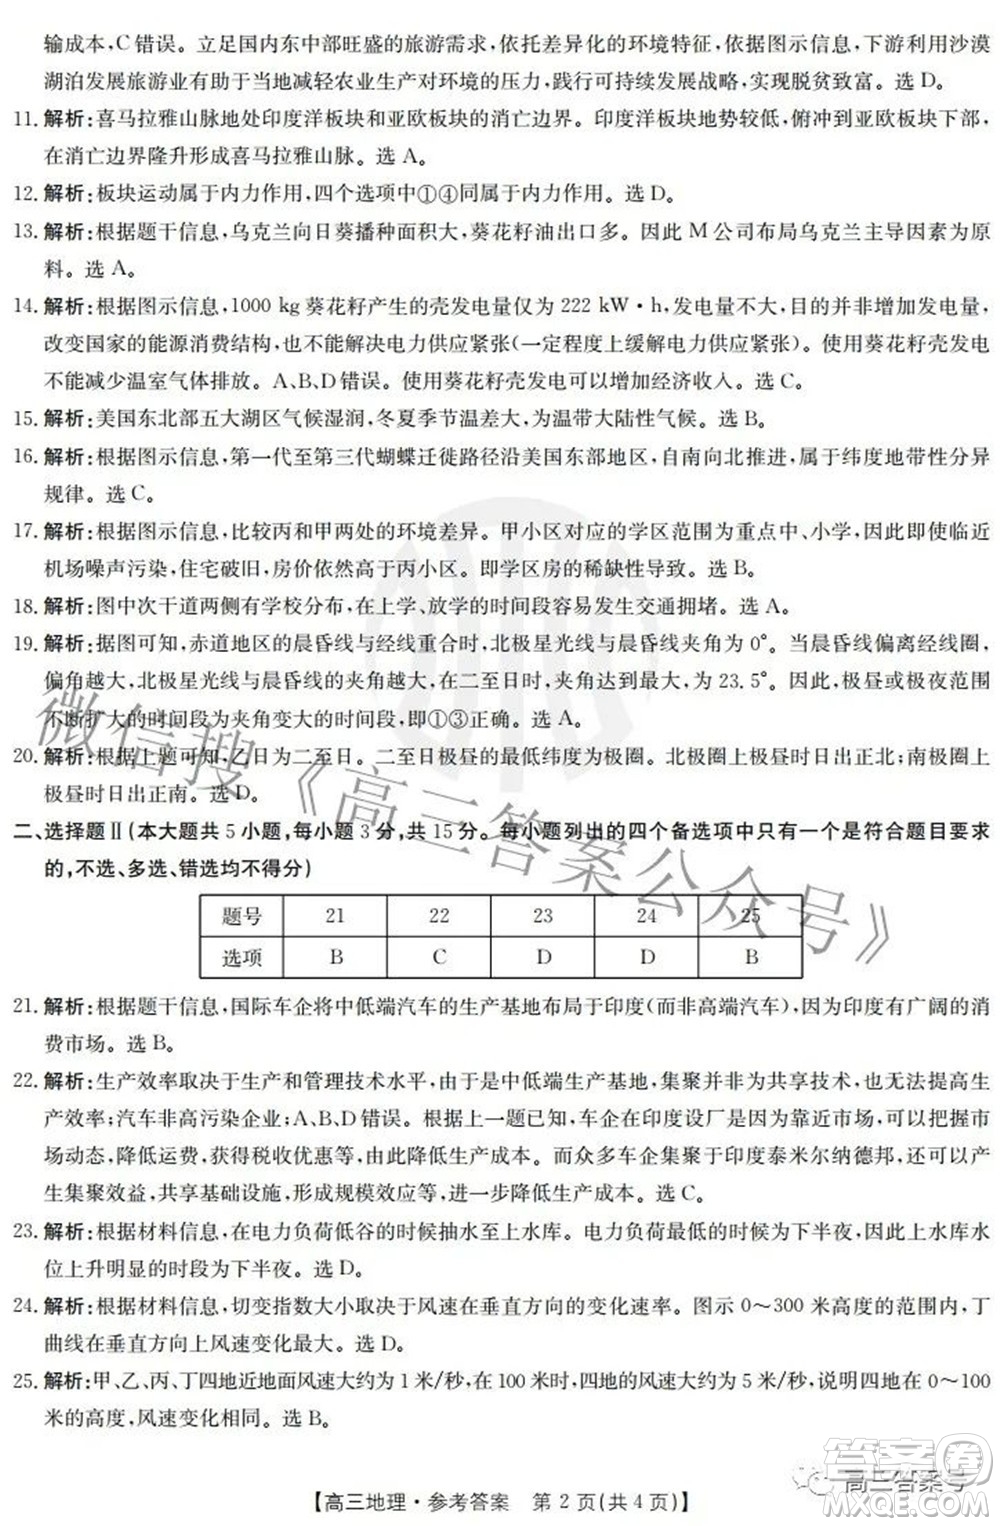 输成本,C错误。立足国内东中部旺盛的旅游需求,依托差异化的环境特征,依据图示信息,下游利用沙漠
湖泊发展旅游业有助于当地减轻农业生产对环境的压力,践行可持续发展战略,实现脱贫致富。选D。
11. 解析:喜马拉雅山脉地处印度洋板块和亚欧板块的消亡边界。印度洋板块地势较低,俯冲到亚欧板块下部,
在消亡边界隆升形成喜马拉雅山脉。选A。
12. 解析:板块运动属于内力作用,四个选项中①④同属于内力作用。选D。
13. 解析:根据题干信息,乌克兰向日葵播种面积大,葵花籽油出口多。因此M公司布局乌克兰主导因素为原
料。选A。
14. 解析:根据图示信息,1000 kg葵花籽产生的壳发电量仅为222 kW·h,发电量不大,目的并非增加发电量,
改变国家的能源消费结构,也不能解决电力供应紧张(一定程度上缓解电力供应紧张)。使用葵花籽壳发电
不能减少温室气体排放。A、B、D错误。使用葵花籽壳发电可以增加经济收入。选C。
15. 解析:美国东北部五大湖区气候湿润,冬夏季节温差大,为温带大陆性气候。选B。
16. 解析:根据图示信息,第一代至第三代蝴蝶迁徙路径沿美国东部地区,自南向北推进,属于纬度地带性分异
规律。选C。
17. 解析:根据图示信息,比较丙和甲两处的环境差异。甲小区对应的学区范围为重点中、小学,因此,即使临近
机场噪声污染,住宅破旧,房价依然高于丙小区。即学区房的稀缺性导致。选B。
18. 解析:图中次干道两侧有学校分布,在上学、放学的时间段容易发生交通拥堵。选A。
19. 解析:据图可知,赤道地区的晨昏线与经线重合时,北极星光线与晨昏线夹角为0°。当晨昏线偏离经线圈,
偏角越大,北极星光线与晨昏线的夹角越大,在二至日时,夹角达最大,为23.5°。因此,极昼或极夜范围
不断扩大的时间段为夹角变大的时间段,即①③正确。选A。
20. 解析:根据上题可知,乙日为二至日。二至日极昼的最低纬度为极圈。北极圈上极昼时日出正北;南极圈上
极昼时日出正南。选D。
二、选择题Ⅱ(本大题共5小题,每小题3分,共15分。每小题列出的四个备选项中只有一个是符合题目要求
的,不选、多选、错选均不得分)
题号 21 22 23 24 25
选项 B C D D B
21. 解析:根据题干信息,国际车企将中低端汽车的生产基地布局于印度(而非高端汽车),因为印度有广阔的消
费市场。选B。
22. 解析:生产效率取决于生产和管理技术水平,由于是中低端生产基地,集聚并非为共享技术,也难以提高生
产效率;汽车非高污染企业;A、B、D错误。由上一题已知,车企在印度设厂是为靠近市场,可以更好把握市
场动态,降低运费,获得税收优惠等,最终降低生产成本。而众多车企集聚于印度泰米尔纳德邦,可以产
生集聚效益,共享基础设施,形成规模效应等,进一步降低生产成本。选C。
23. 解析:根据材料信息,在电力负荷低谷的时候抽水至上水库。电力负荷最低的时候为下半夜,因此上水库水
位上升明显的时段为下半夜。选D。
24. 解析:根据材料信息,切变指数大小取决于风速在垂直方向的变化速率。图示0~300米高度的范围内,丁
曲线在垂直方向上风速变化最大。选D。
25. 解析:甲、乙、丙、丁四地近地面风速大约为1米/秒,在100米时,四地的风速大约为5米/秒,说明四地在0~100
米的高度,风速变化相同。选B。
【高三地理·参考答案 第2页(共4页)】
微信搜《高三答案公众号》
高三答案号
答案圈
MXQE.COM